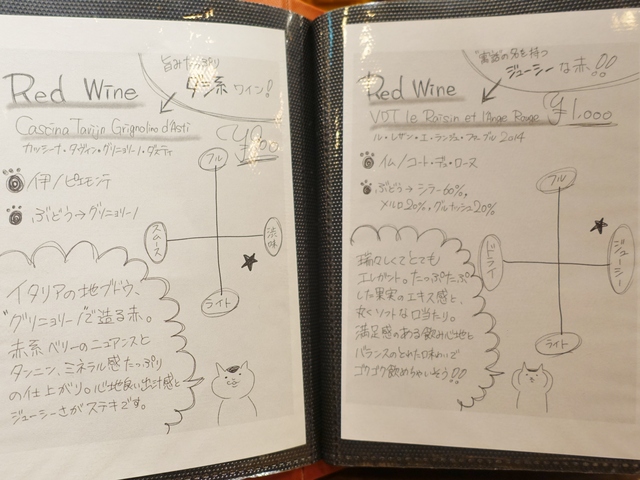 旨みたっぷり
ダシ系 ワイン!
Red Wine
Cascina Tavijn Grignolino d'Asti
カッシーナ・タヴィン・グリニョリーノ・ダスティ
伊/ピエモンテ
ぶどう→グリニョリーノ
フル
スムース
渋味
ライト
イタリアの地ブドウ、
"グリニョリーノ"で造る赤。
赤系ベリーのニュアンスと
タンニン、ミネラル感たっぷり
の仕上がり。心地良い出汁感と
ジューシーさがステキです。
の名を持つ
ジューシーな赤、!!
Red Wine
VDT le Raisin et l'Ange Rouge ¥1,000
ル・レザン・エ・ランジュ・ 2014
コート・デュ・ローヌ
ぶどう→シラー60%,
メルロ20%,グルナッシュ20%
フル
ドライ
ジューシー
ライト
瑞々しくてとても
エレガント。たっぷたっぷ
した果実のエキス感と、
丸くソフトな口当たり。
満足感のある飲み心地と
バランスのとれた味わいで
ゴクゴク飲めちゃいそう!!